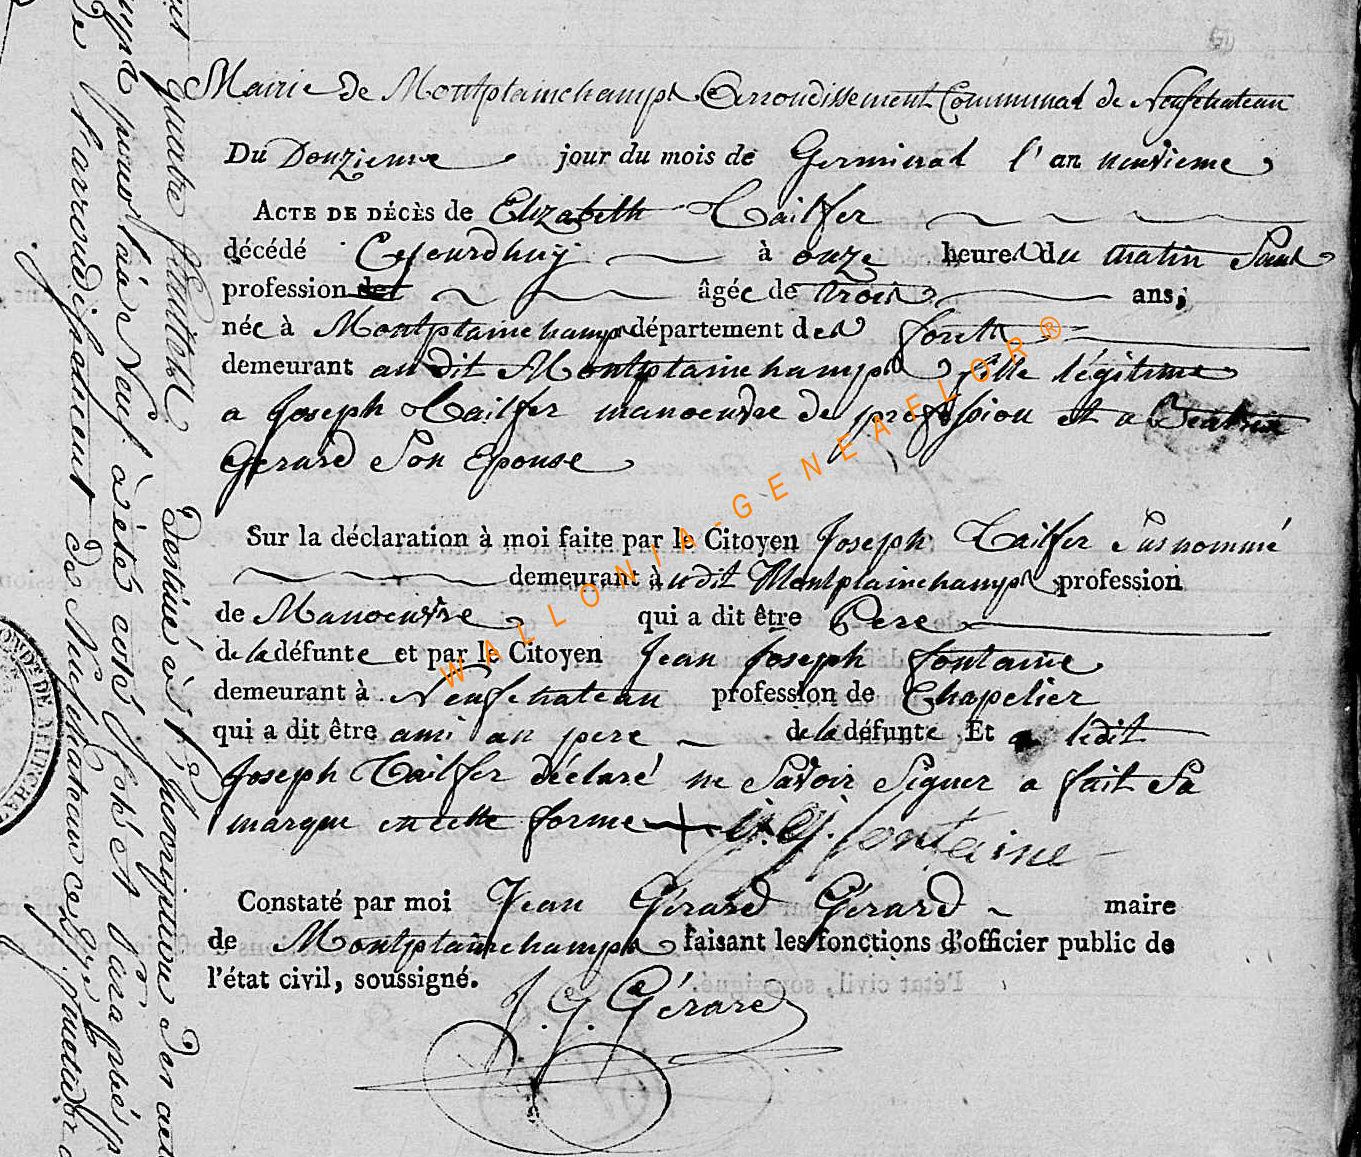 Mairie de Montplainchamps Arrondissement Communal de Neufchateau
Du Douzieme jour du mois de Germinal l'an neuvieme
ACTE DE DÉCÈS de Elizabeth Tailfer
décédé Cejourdhuy à onze heures du matin Sans
profession de âgée de trois ans,
née à Montplainchamps département des forets
demeurant audit Montplainchamps fille légitime
a Joseph Tailfer manoeuvre de profession et a Beatrix
Gerard Son Epouse
Sur la déclaration à moi faite par le Citoyen Joseph Tailfer susnommé
demeurant à udit Montplainchamps profession
de Manoeuvre qui a dit être Pere
de la défunte et par le Citoyen Jean Joseph fontaine
demeurant à Neufchateau profession de Chapelier
qui a dit être ami au pere de la défunte Et ledit
Joseph Tailfer déclaré ne Savoir Signer a fait Sa
marque en cette forme + j. j. fontaine
Constaté par moi Jean Gérard Gérard maire
de Montplainchamps faisant les fonctions d'officier public de
l'état civil, soussigné.
J. G. Gérard
quatre feuillets
destiné à l'inscription des
pour l'an Neuf à été coté
de l'arrondissement de Neufchateau
WALLONIA-GENEAFLOR®